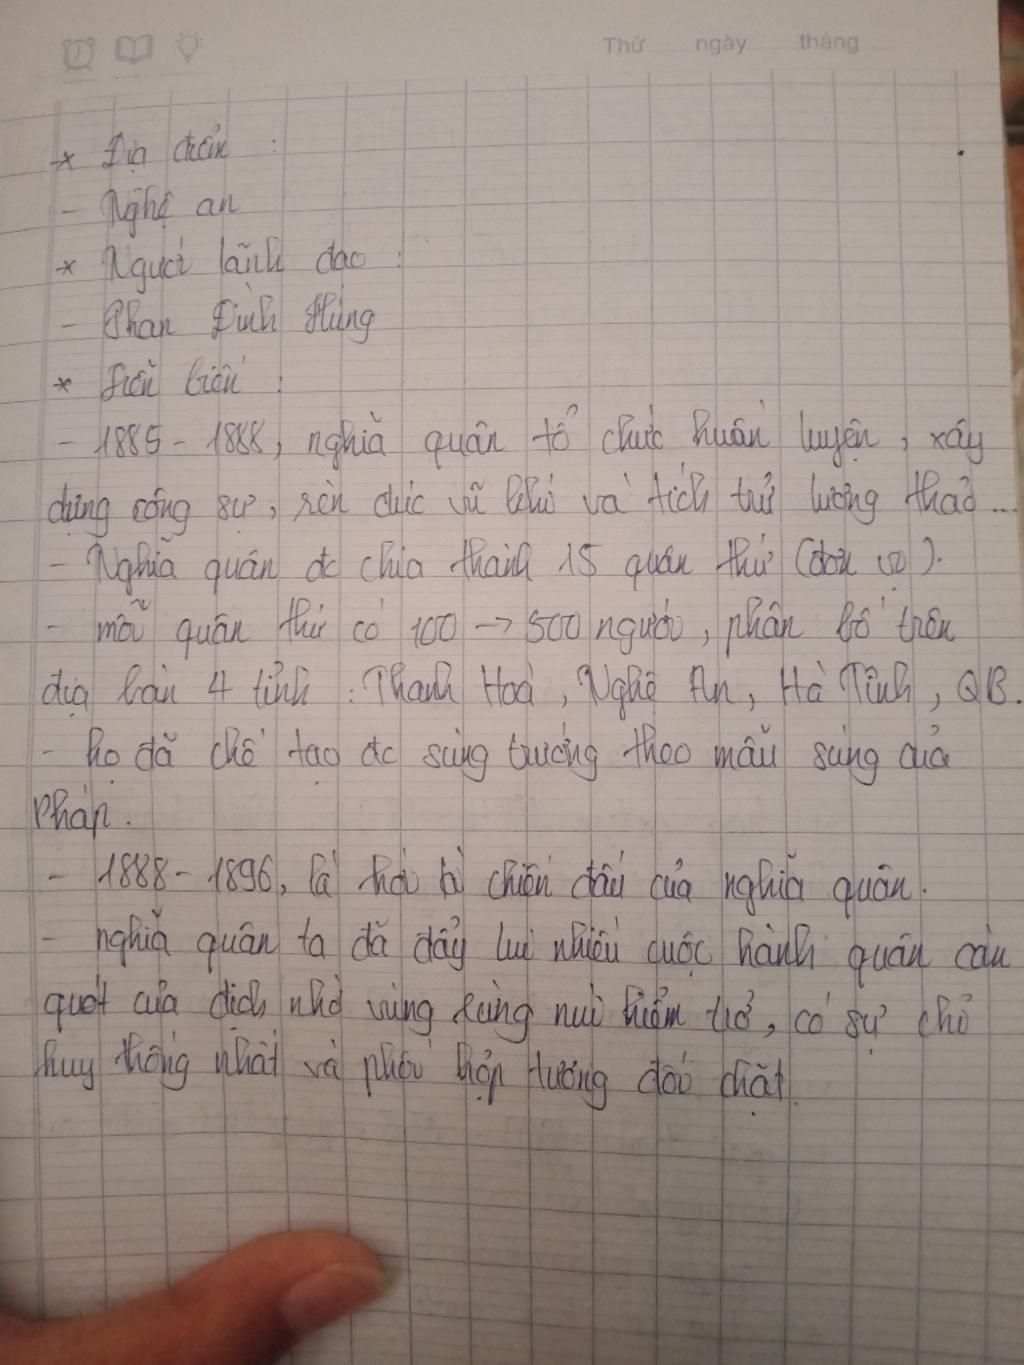 Thứ ngày tháng
* Địa điểm :
- Nghệ an
* Người lãnh đạo :
- Phan Đình Phùng
* Diễn biến :
- 1885 - 1888, nghĩa quân tổ chức huấn luyện, xây
dựng công sự, rèn đúc vũ khí và tích trữ lương thảo...
- Nghĩa quân đc chia thành 15 quân thứ (đơn vị).
- mỗi quân thứ có 100 → 500 người, phân bố trên
địa bàn 4 tỉnh : Thanh Hoá, Nghệ An, Hà Tĩnh, QB.
- họ đã chế tạo đc súng trường theo mẫu súng của
Pháp.
- 1888 - 1896, là thời kì chiến đấu của nghĩa quân.
- nghĩa quân ta đã đẩy lui nhiều cuộc hành quân càn
quét của địch nhờ vùng rừng núi hiểm trở, có sự chỉ
huy thống nhất và phối hợp tương đối chặt.